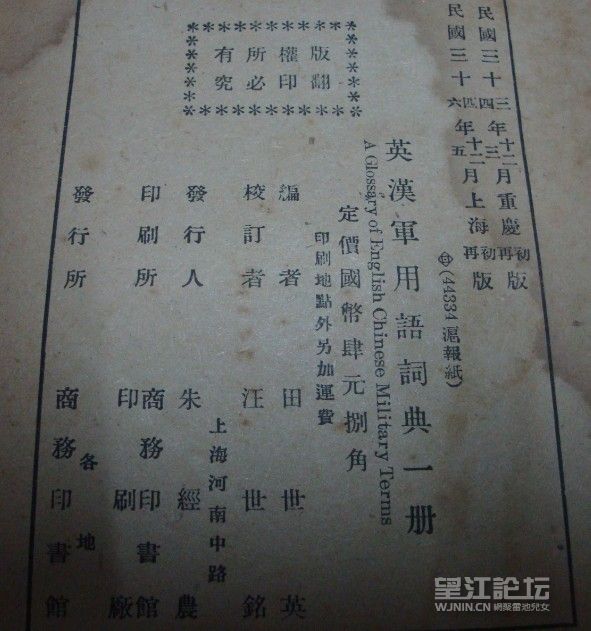 民國三十三四年十二三月重慶初再版
民國三十四六年十二五月上海初再版
(44334 滬報紙)
英漢軍用語詞典一册
A Glossary of English Chinese Military Terms
定價國幣肆元捌角
印刷地點外另加運費
版權所有
翻印必究
編者 田世英
校訂者 汪世銘
上海河南中路
發行人 朱經農
印刷所 商務印書館
印刷廠
各地
發行所 商務印書館
望江論坛
WJNIN.CN 網聚雷池兒女